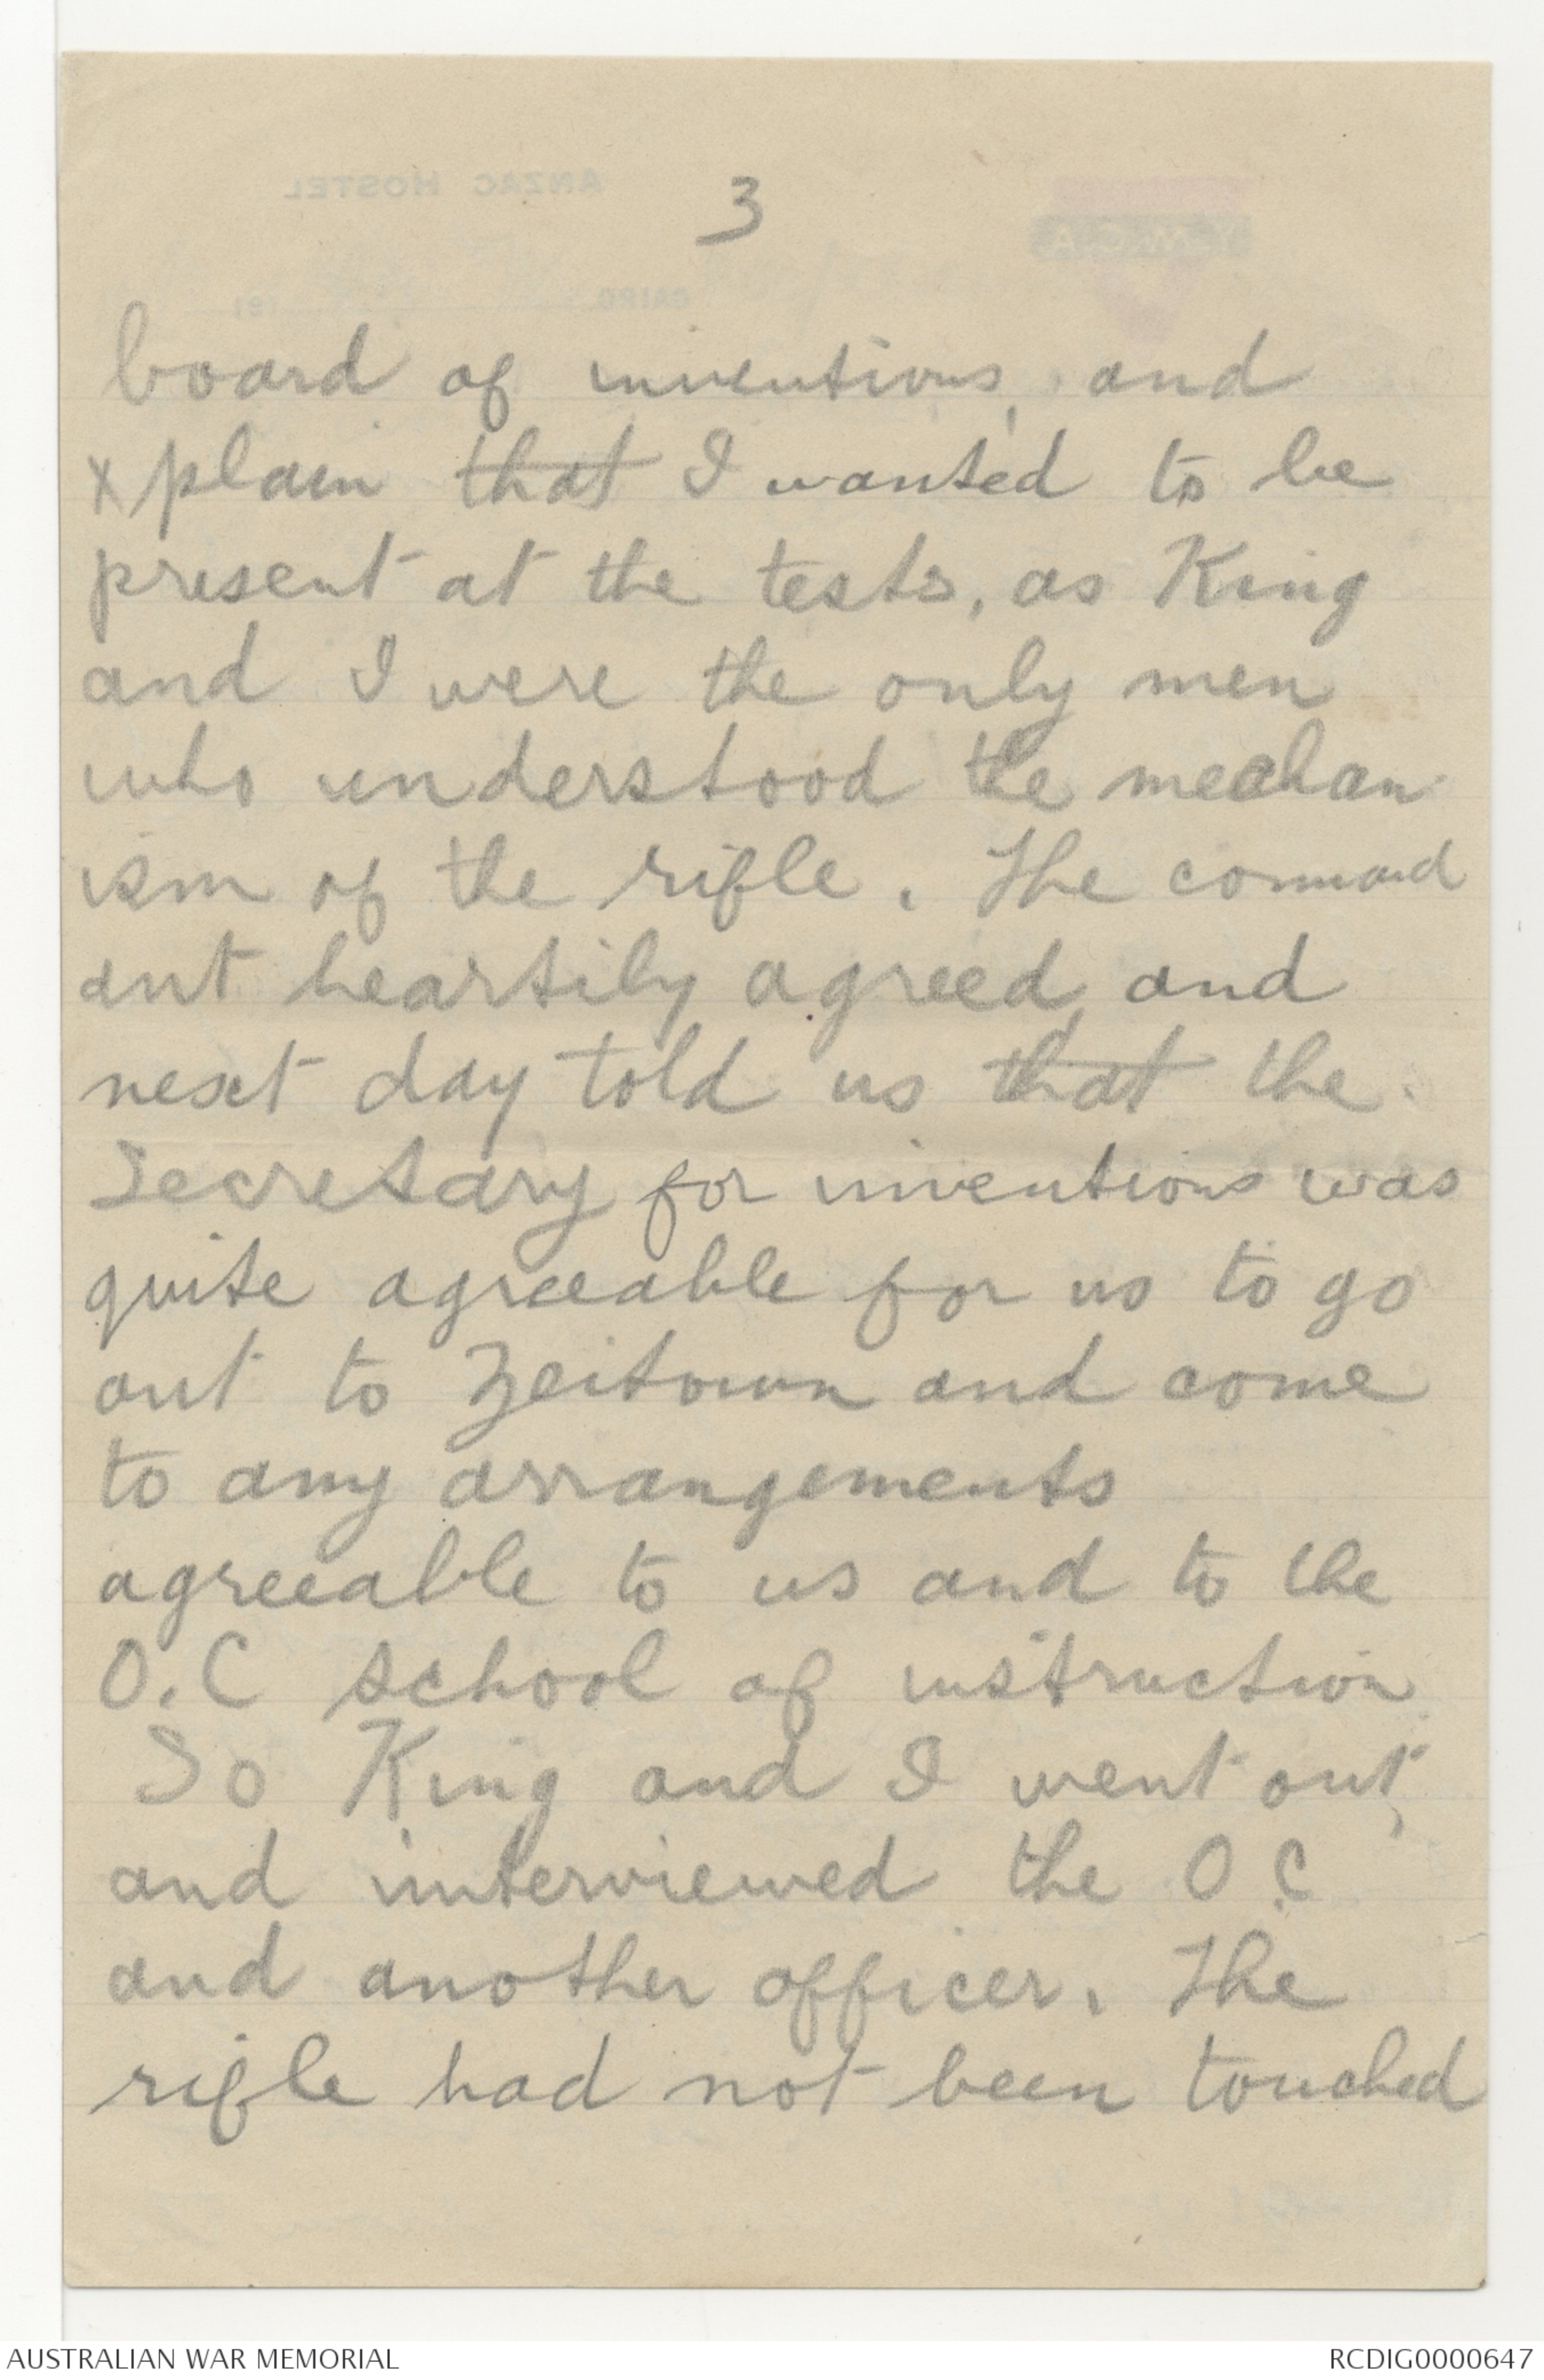 3
board of inventions, and
xplain that I wanted to be
present at the tests, as King
and I were the only men
who understood the mechan
ism of the rifle. The command
ant heartily agreed, and
next day told us that the
Secretary for inventions was
quite agreeable for us to go
out to Zeitoun and come
to any arrangements
agreeable to us and to the
O.C school of instruction
So King and I went out,
and interviewed the O.C
and another officer. The
rifle had not been touched
ANZAC HOSTEL
Y.M.C.A.
CAIRO 191
AUSTRALIAN WAR MEMORIAL
RCDIG0000647